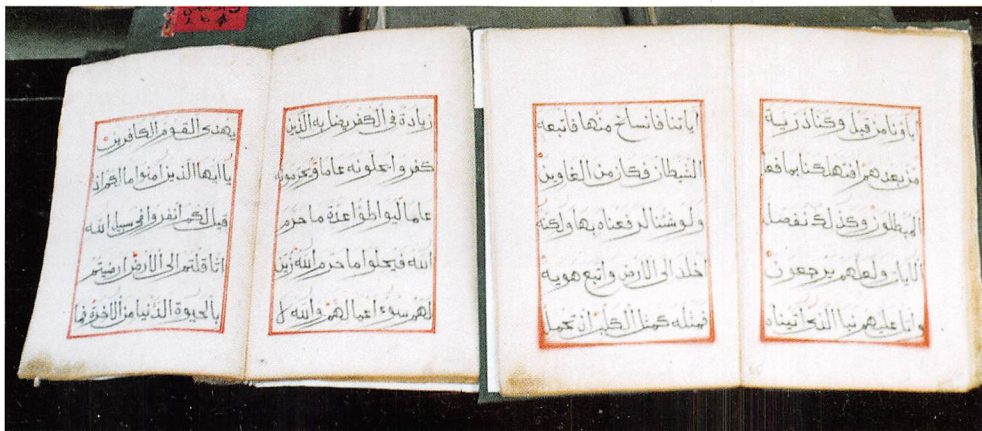 اباؤنا من قبل وكنا ذرية
من بعدهم افتهلكنا بما فعل
المبطلون وكذلك نفصل
الايات ولعلهم يرجعون
واتل عليهم نبا الذي اتيناه
اياتنا فانسلخ منها فاتبعه
الشيطان فكان من الغاوين
ولو شئنا لرفعناه بها ولكنه
اخلد الى الارض واتبع هويه
فمثله كمثل الكلب ان تحمل
زيادة في الكفر يضل به الذين
كفروا يحلونه عاما ويحرمونه
عاما ليواطؤا عدة ما حرم
الله فيحلوا ما حرم الله زين
لهم سوء اعمالهم والله لا
يهدى القوم الكافرين
يا ايها الذين امنوا ما لكم اذا
قيل لكم انفروا في سبيل الله
اثاقلتم الى الارض ارضيتم
بالحيوة الدنيا من الاخرة فما